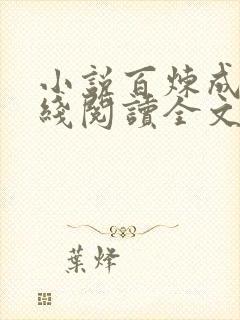 小說百煉成
綫閱讀全文
葉烽